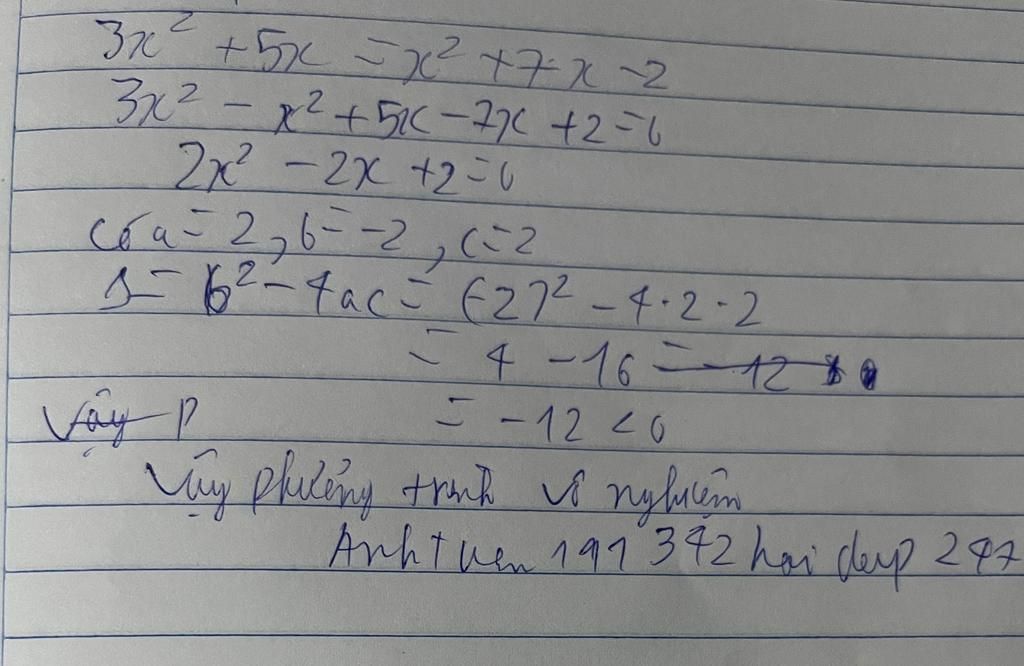 3x² + 5x = x² + 7·x - 2
3x² - x² + 5x - 7x + 2 = 0
2x² - 2x + 2 = 0
có a = 2, b = -2, c = 2
Δ = b² - 4ac = (-2)² - 4·2·2
= 4 - 16 = -12
Vậy P = -12 < 0
Vậy phương trình vô nghiệm
Anh tuen 191 342 hai dep 247